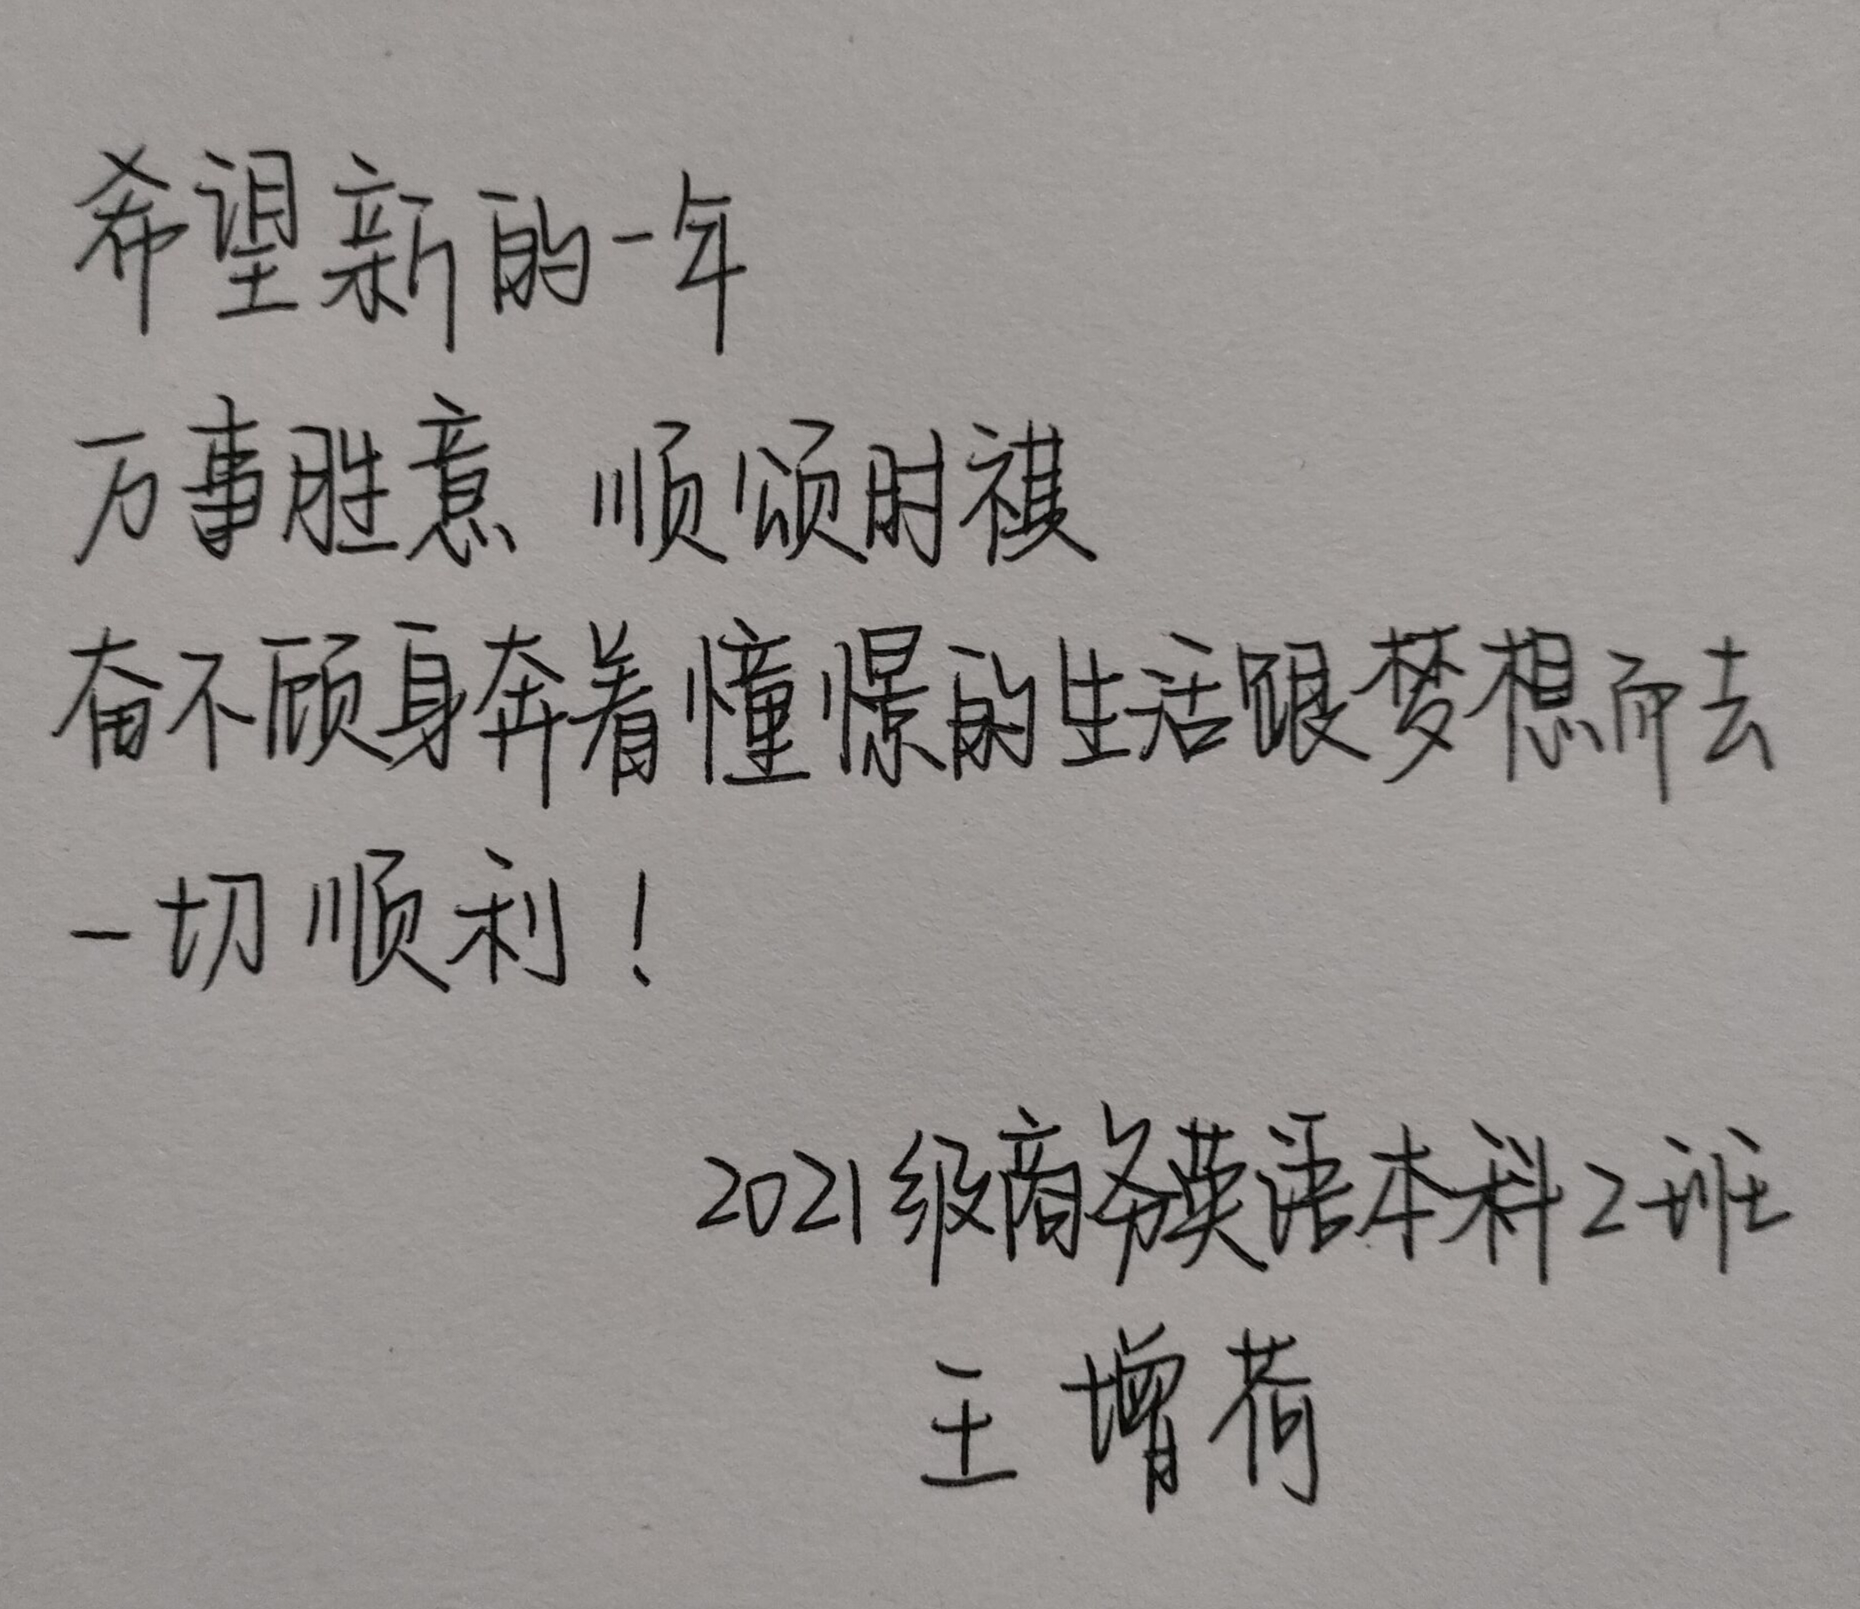 希望新的一年
万事胜意 顺颂时祺
奋不顾身奔着憧憬的生活跟梦想而去
一切顺利！
2021级商务英语本科2班
王增荷